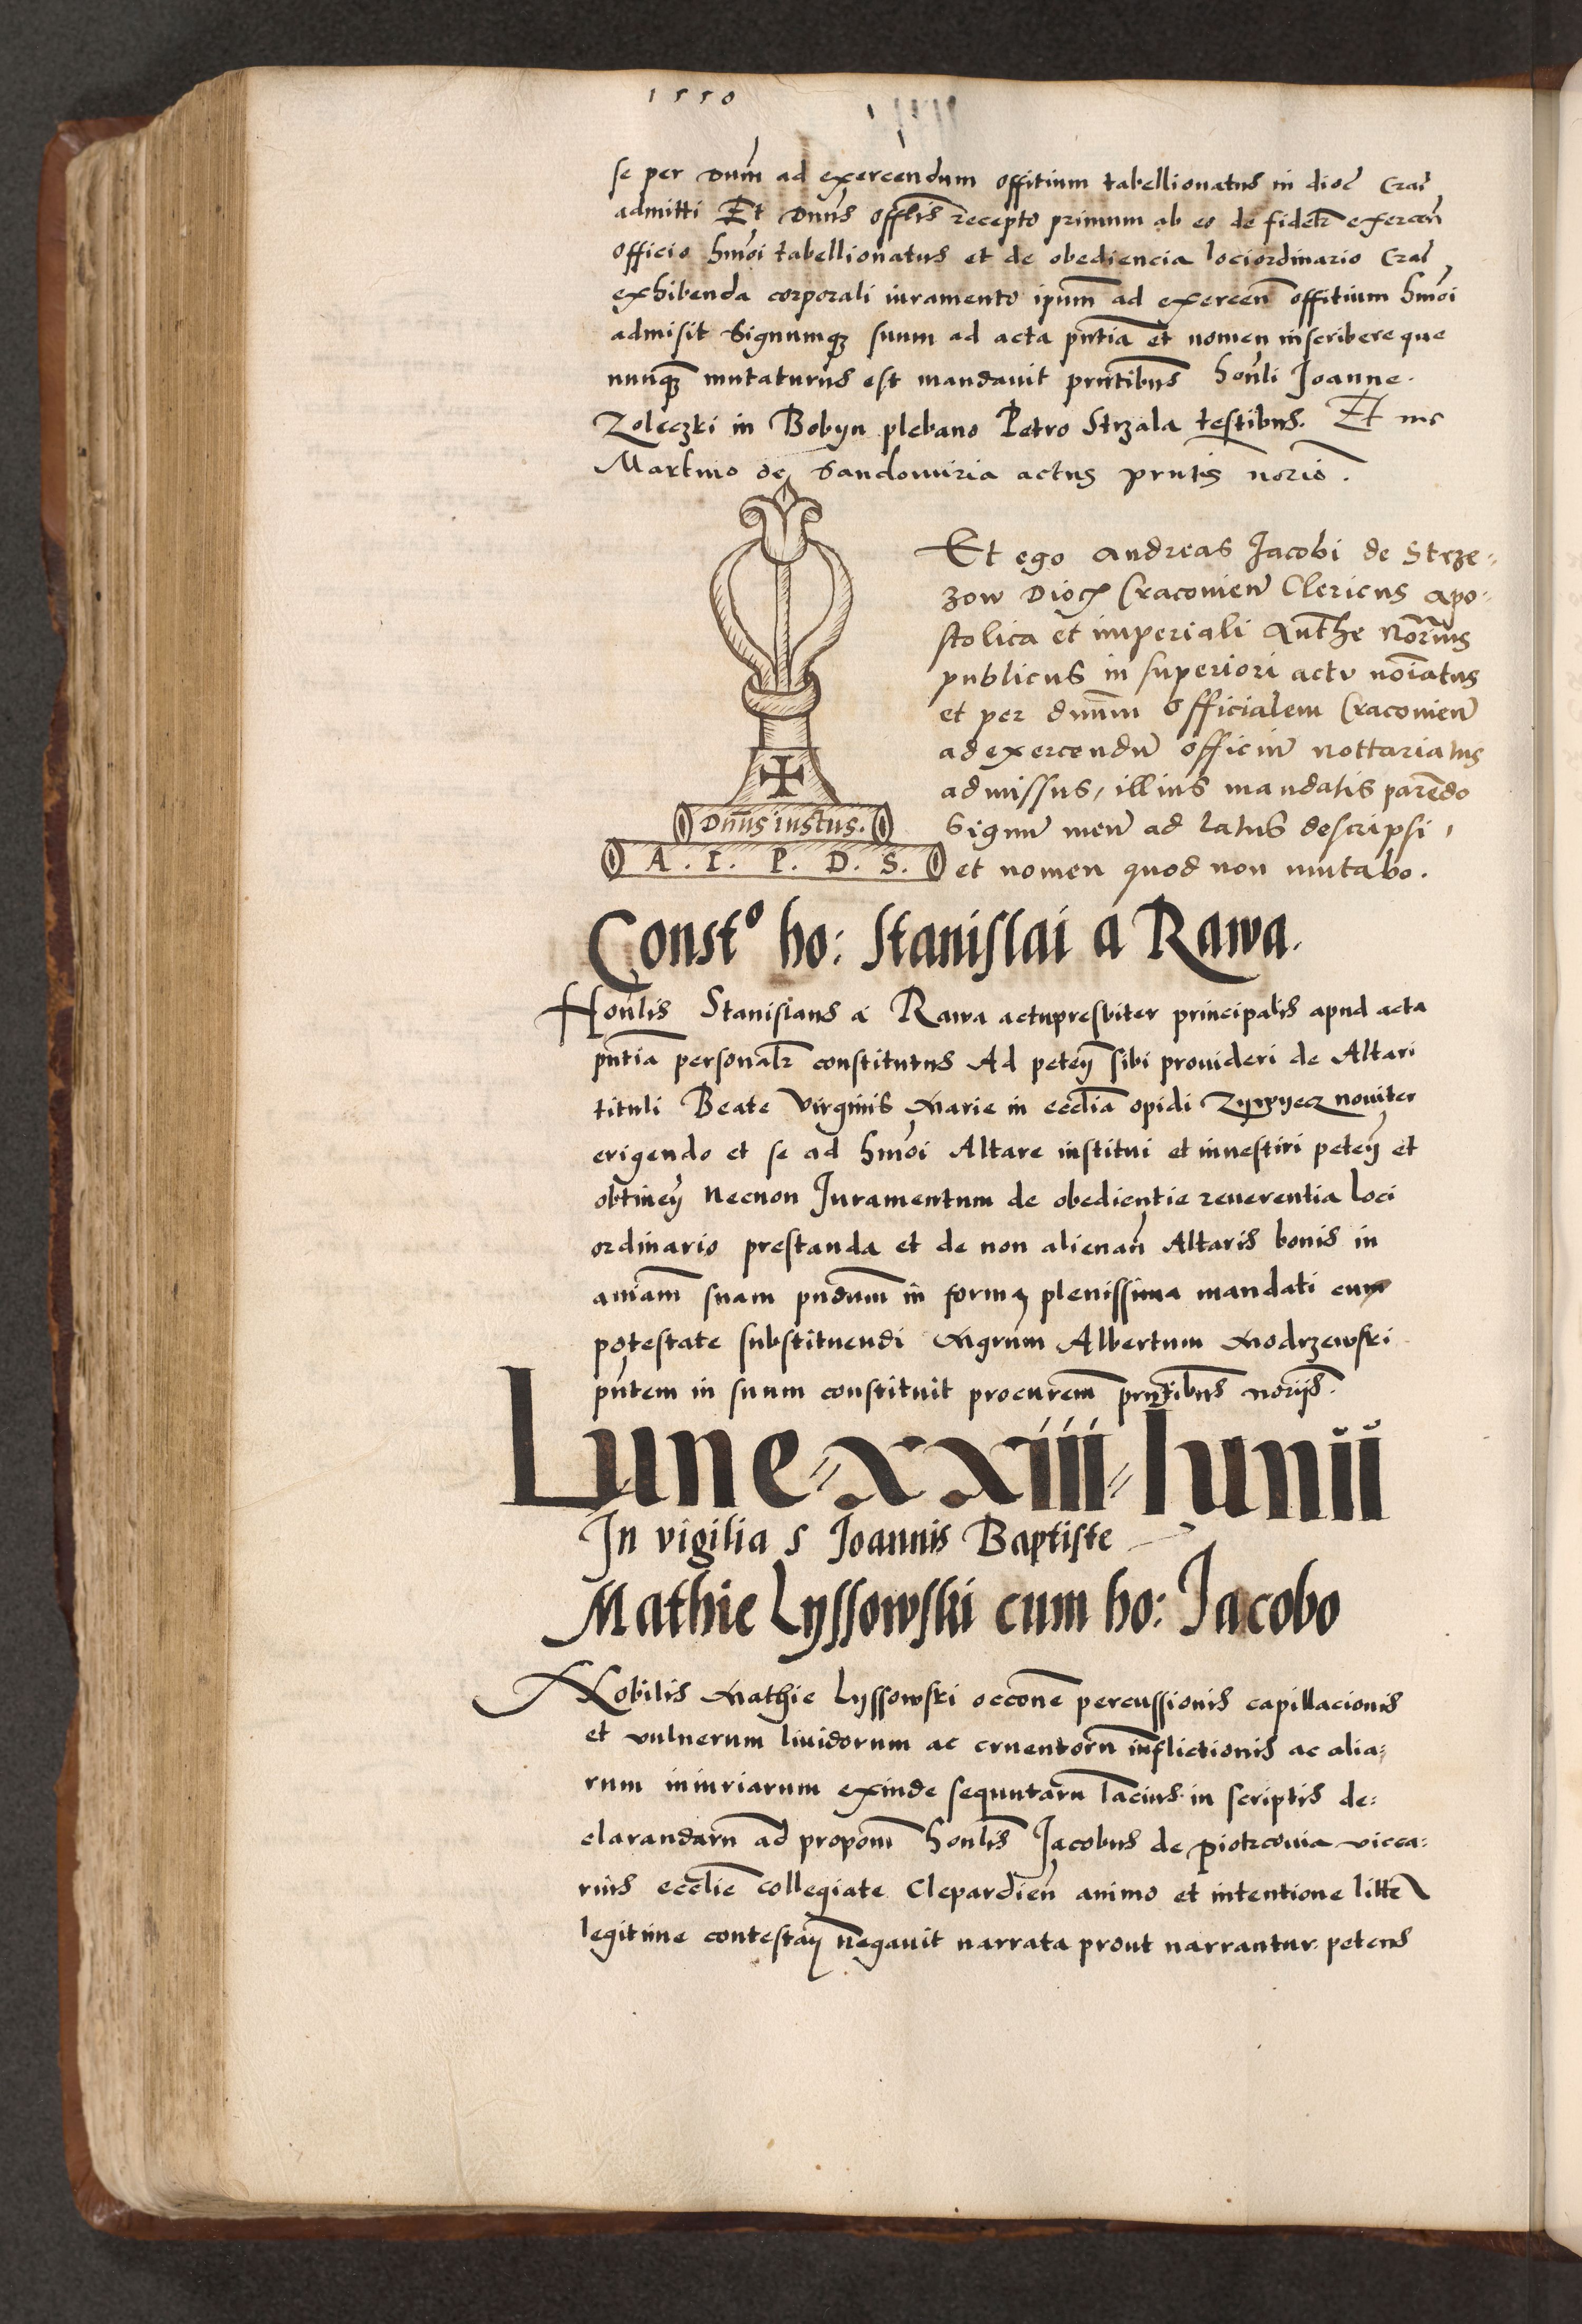 1550
se per dnm̄ ad exercendum offitium tabellionatus in dioc̄ Crac̄
admitti Et dnūs offlīs recepto primum ab eo de fidelr̄ exercen̄
officio hmōi tabellionatus et de obediencia lociordinario Crac̄
exhibenda corporali iuramento ipum̄ ad exercen̄ offitium hmōi
admisit Signumqꝫ suum ad acta pn̄tia et nomen inscribere que
nunqꝫ mutaturus est mandauit prn̄tibus honl̄i Joanne.
Zoleczki in Bobyn plebano Petro Strzala testibus. Et me
Martino de Sandomiria actus prn̄tis norīo.
Et ego Andreas Jacobi de Strze-
zow Dioc̄ Cracouien̄ Clericus Apo-
stolica et imperiali Autḥe Norīus
publicus in superiori actu noīatus
et per dnūm Officialem Cracouien̄
ad exercendū officiū nottariatus
admissus, illius mandatis parēdo
Signū meū ad latus descripsi,
et nomen quod non mutabo.
Dnūs iustus.
A. I. P. D. S.
Constº ho: Stanislai a Rawa.
Honl̄is Stanislaus a Rawa actupresbiter principalis apud acta
pn̄tia personalr̄ constitutus Ad peteṇ̄ sibi prouideri de Altari
tituli Beate Virginis Marie in ecclīa opidi Zywyecz nouiter
erigendo et se ad hmōi Altare institui et inuestiri peteṇ̄ et
obtineṇ̄ Necnon Juramentum de obedientie reuerentia loci
ordinario prestanda et de non alienan̄ Altaris bonis in
aniam̄ suam pn̄dum̄ in forma plenissima mandati cum
potestate substituendi Mgrum̄ Albertum Modrzewski
pn̄tem in suum constituit procurem̄ prn̄tibus norijs̄.
Lune xxiii Iunii
In vigilia S Joannis Baptiste
Mathie Lyssowski cum ho: Jacobo
Nobilis Mathie Lyssowski occōne percussionis capillacionis
et vulnerum liuidorum ac cruentorū inflictionis ac alia=
rum iniuriarum exinde sequutarū lacius in scriptis de=
clarandarū ad propom̄ honl̄is Jacobus de Piotrcouia vicca=
rius ecclīe collegiate Clepardien̄ animo et intentione litte
legitime contestan̄ Negauit narrata prout narrantur petens